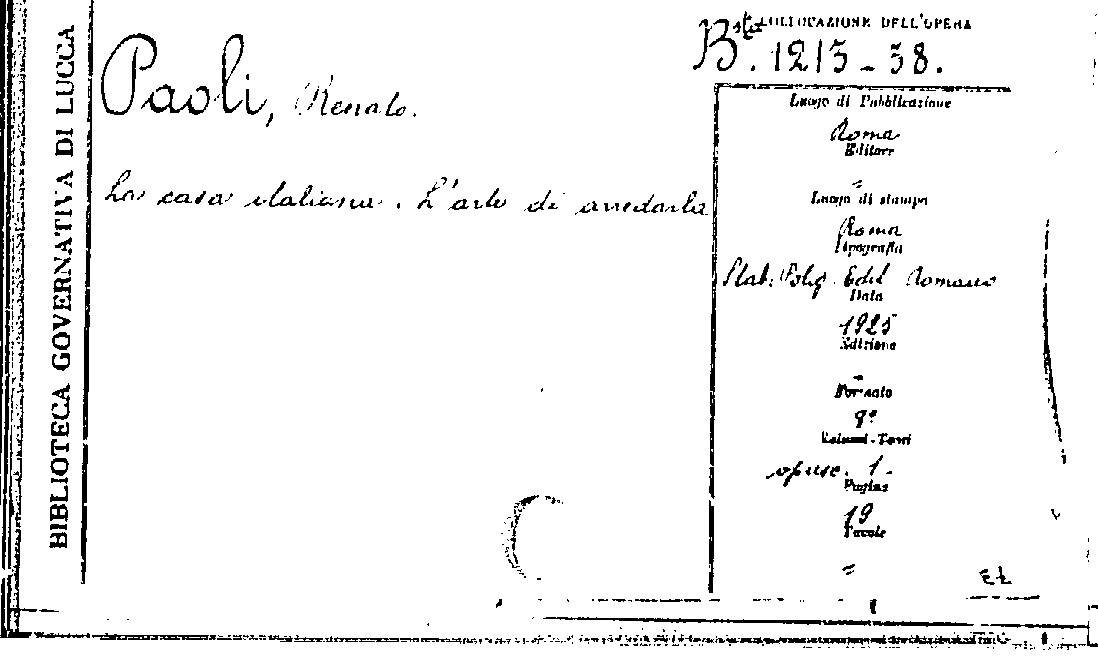 BIBLIOTECA GOVERNATIVA DI LUCCA
COLLOCAZIONE DELL'OPERA
Bsta. 1213-38.
Paoli, Renato.
La casa italiana. L'arte di arredarla
Luogo di Pubblicazione
Roma
Editore
=
Luogo di stampa
Roma
Tipografia
Stab. Polig. Edit. Romano
Data
1925
Edizione
-
Formato
8°
Volumi-Tomi
opusc. 1.
Pagine
19
Tavole
=